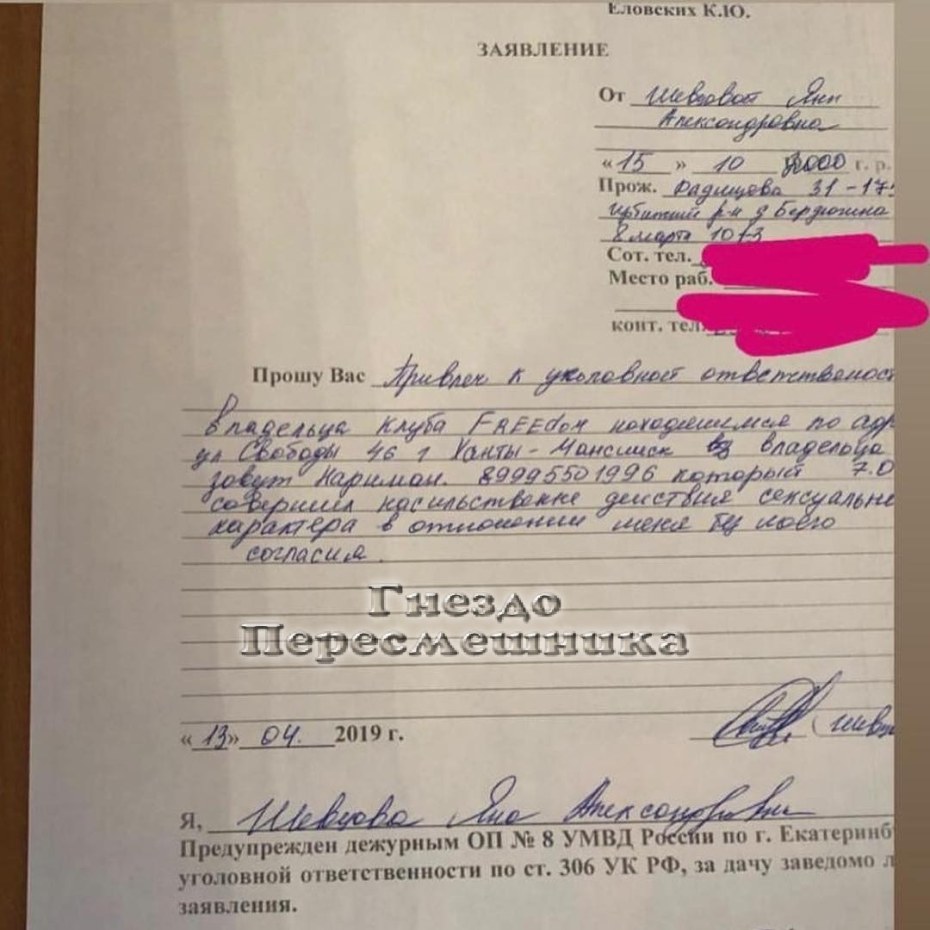 Еловских К.Ю.
ЗАЯВЛЕНИЕ
От Шевцовой Яны
Александровна
«15» 10 2000 г. р.
Прож. Радищева 31-17
Ирбитский р-н д Бердюгина
8 марта 10
Сот. тел.
Место раб.
конт. тел.
Прошу Вас Привлеч к уголовной ответственност
владельца клуба FREEdom находящимся по адр
ул Свободы 46 г Ханты-Мансийск владельца
зовут Нариман. 89995501996 который 7.0
совершил насильственне действия сексуальне
характера в отношении меня без моего
согласия.
Гнездо
Пересмешника
«13» 04. 2019 г.
(Шевц
Я, Шевцова Яна Александровна
Предупрежден дежурным ОП № 8 УМВД России по г. Екатеринб
уголовной ответственности по ст. 306 УК РФ, за дачу заведомо л
заявления.